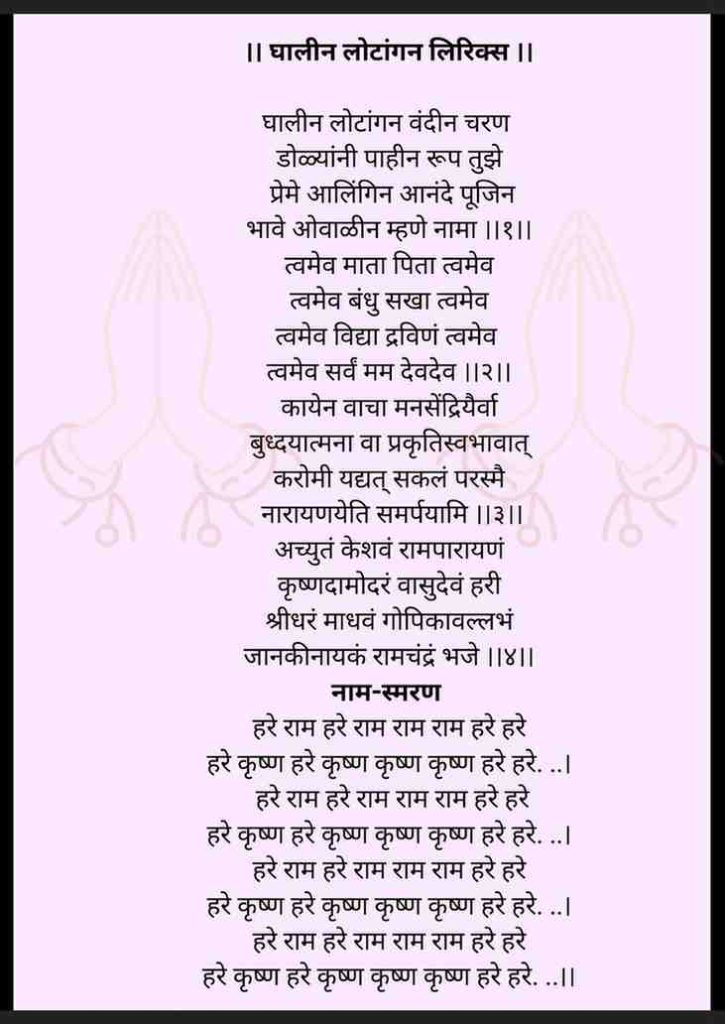 || घालीन लोटांगन लिरिक्स ||
घालीन लोटांगन वंदीन चरण
डोळ्यांनी पाहीन रूप तुझे
प्रेमे आलिंगिन आनंदे पूजिन
भावे ओवाळीन म्हणे नामा ||१||
त्वमेव माता पिता त्वमेव
त्वमेव बंधु सखा त्वमेव
त्वमेव विद्या द्रविणं त्वमेव
त्वमेव सर्वं मम देवदेव ||२||
कायेन वाचा मनसेंद्रियैर्वा
बुध्दयात्मना वा प्रकृतिस्वभावात्
करोमी यद्यत् सकलं परस्मै
नारायणयेति समर्पयामि ||३||
अच्युतं केशवं रामपारायणं
कृष्णदामोदरं वासुदेवं हरी
श्रीधरं माधवं गोपिकावल्लभं
जानकीनायकं रामचंद्रं भजे ||४||
नाम-स्मरण
हरे राम हरे राम राम राम हरे हरे
हरे कृष्ण हरे कृष्ण कृष्ण कृष्ण हरे हरे. ..|
हरे राम हरे राम राम राम हरे हरे
हरे कृष्ण हरे कृष्ण कृष्ण कृष्ण हरे हरे. ..|
हरे राम हरे राम राम राम हरे हरे
हरे कृष्ण हरे कृष्ण कृष्ण कृष्ण हरे हरे. ..|
हरे राम हरे राम राम राम हरे हरे
हरे कृष्ण हरे कृष्ण कृष्ण कृष्ण हरे हरे. ..||